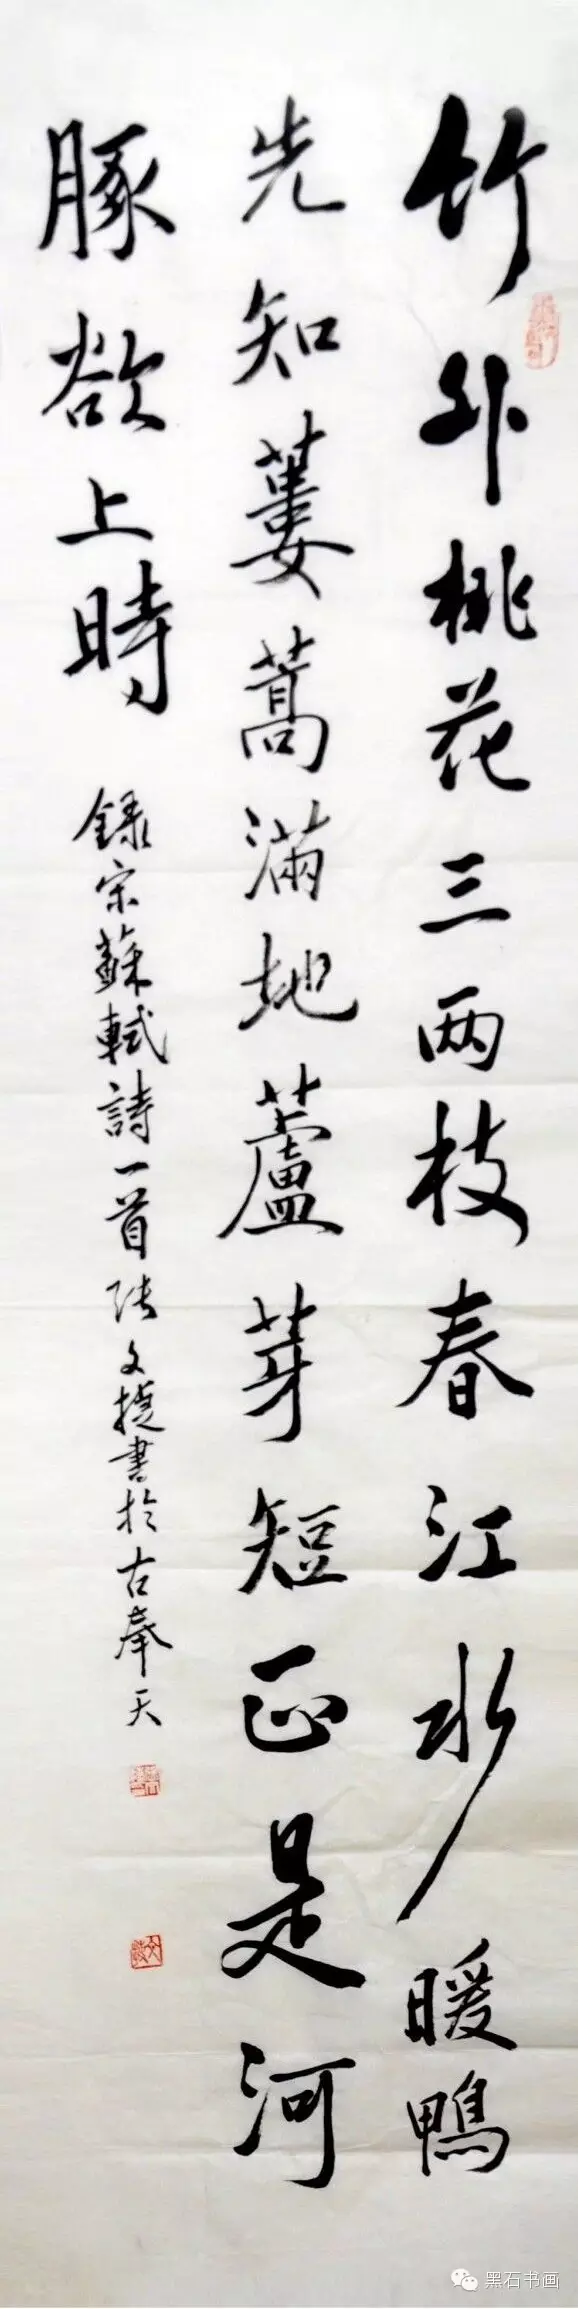 竹外桃花三两枝春江水暖鴨
先知蔞蒿滿地蘆芽短正是河
豚欲上時
録宋蘇軾詩一首張文捷書於古奉天
黑石书画